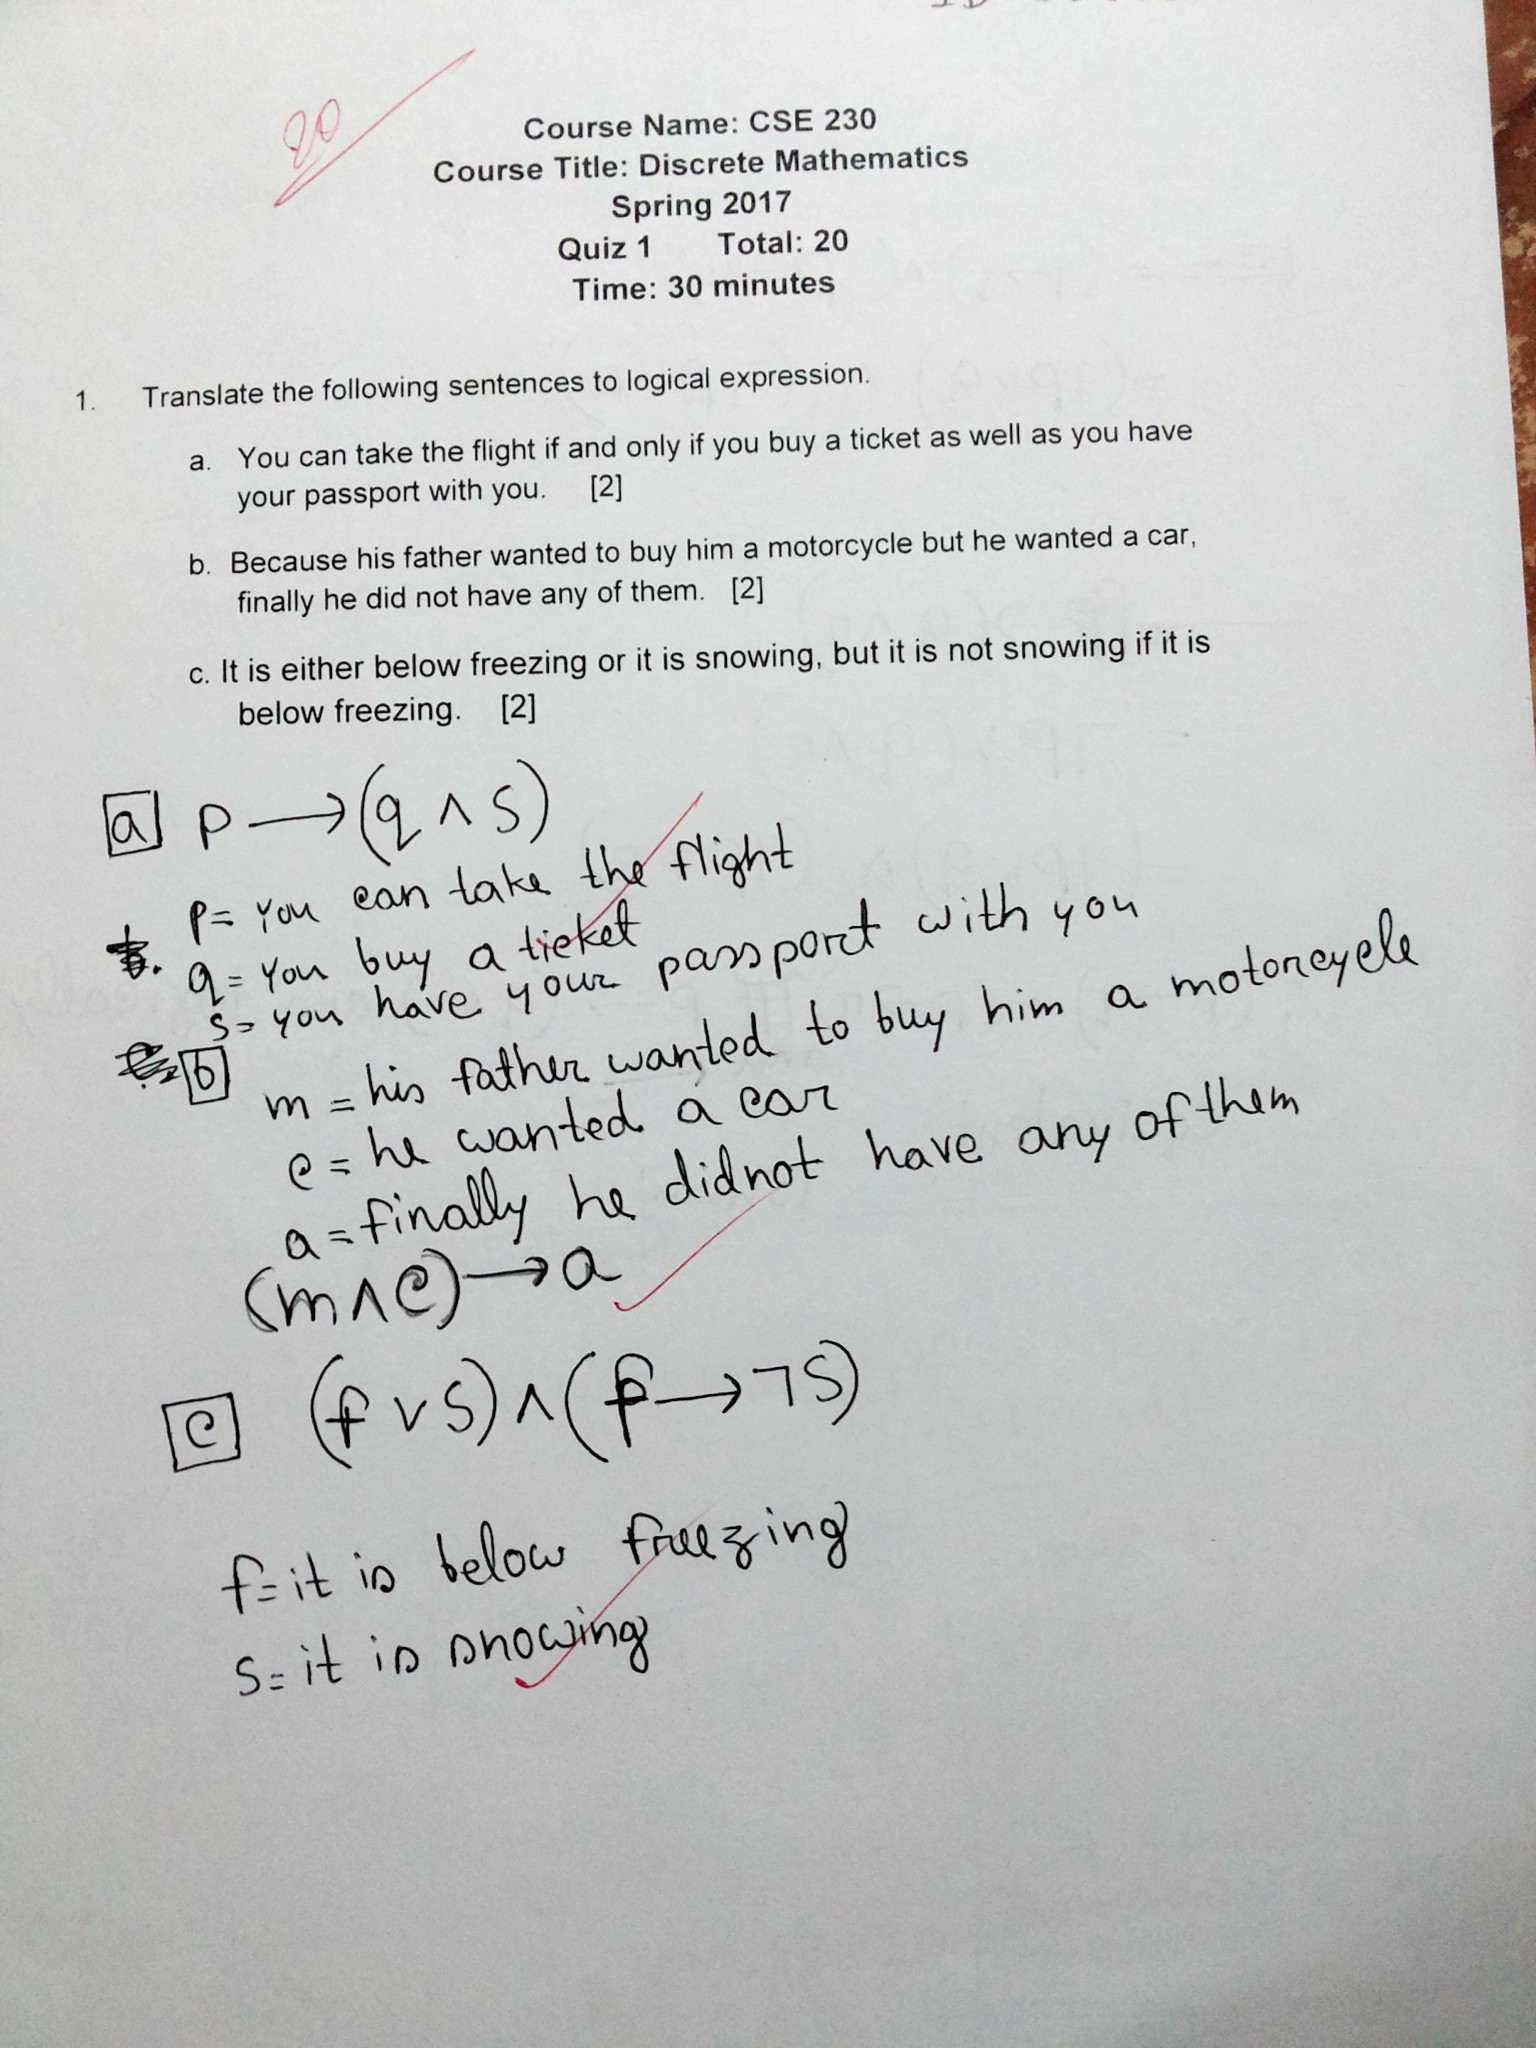 20
Course Name: CSE 230
Course Title: Discrete Mathematics
Spring 2017
Quiz 1 Total: 20
Time: 30 minutes
1. Translate the following sentences to logical expression.
a. You can take the flight if and only if you buy a ticket as well as you have
your passport with you. [2]
b. Because his father wanted to buy him a motorcycle but he wanted a car,
finally he did not have any of them. [2]
c. It is either below freezing or it is snowing, but it is not snowing if it is
below freezing. [2]
a p → (q ∧ s)
p = You can take the flight
q = You buy a ticket
s = you have your passport with you
b m = his father wanted to buy him a motorcycle
c = he wanted a car
a = finally he didnot have any of them
(m ∧ c) → a
c (f ∨ s) ∧ (f → ¬s)
f = it is below freezing
s = it is snowing